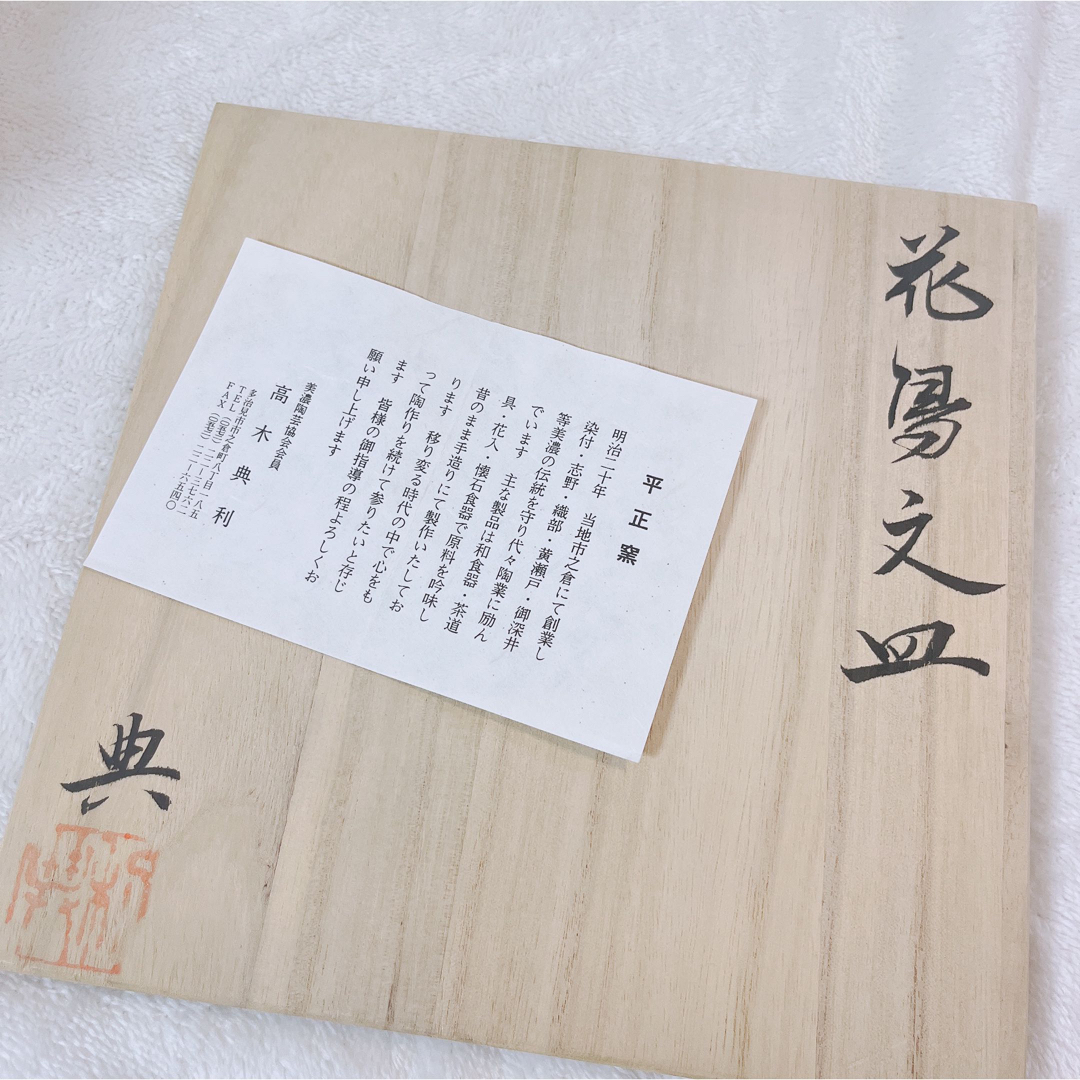 花鳥文皿
典
平正窯
明治二十年 当地市之倉にて創業し
染付・志野・織部・黄瀬戸・御深井
等美濃の伝統を守り代々陶業に励ん
でいます 主な製品は和食器・茶道
具・花入・懐石食器で原料を吟味し
昔のまま手造りにて製作いたしてお
ります 移り変る時代の中で心をも
って陶作りを続けて参りたいと存じ
ます 皆様の御指導の程よろしくお
願い申し上げます
美濃陶芸協会会員
高木典利
多治見市市之倉町八丁目一八五
TEL(〇五七二)二二ー三七六二
FAX(〇五七二)二二ー六五四〇